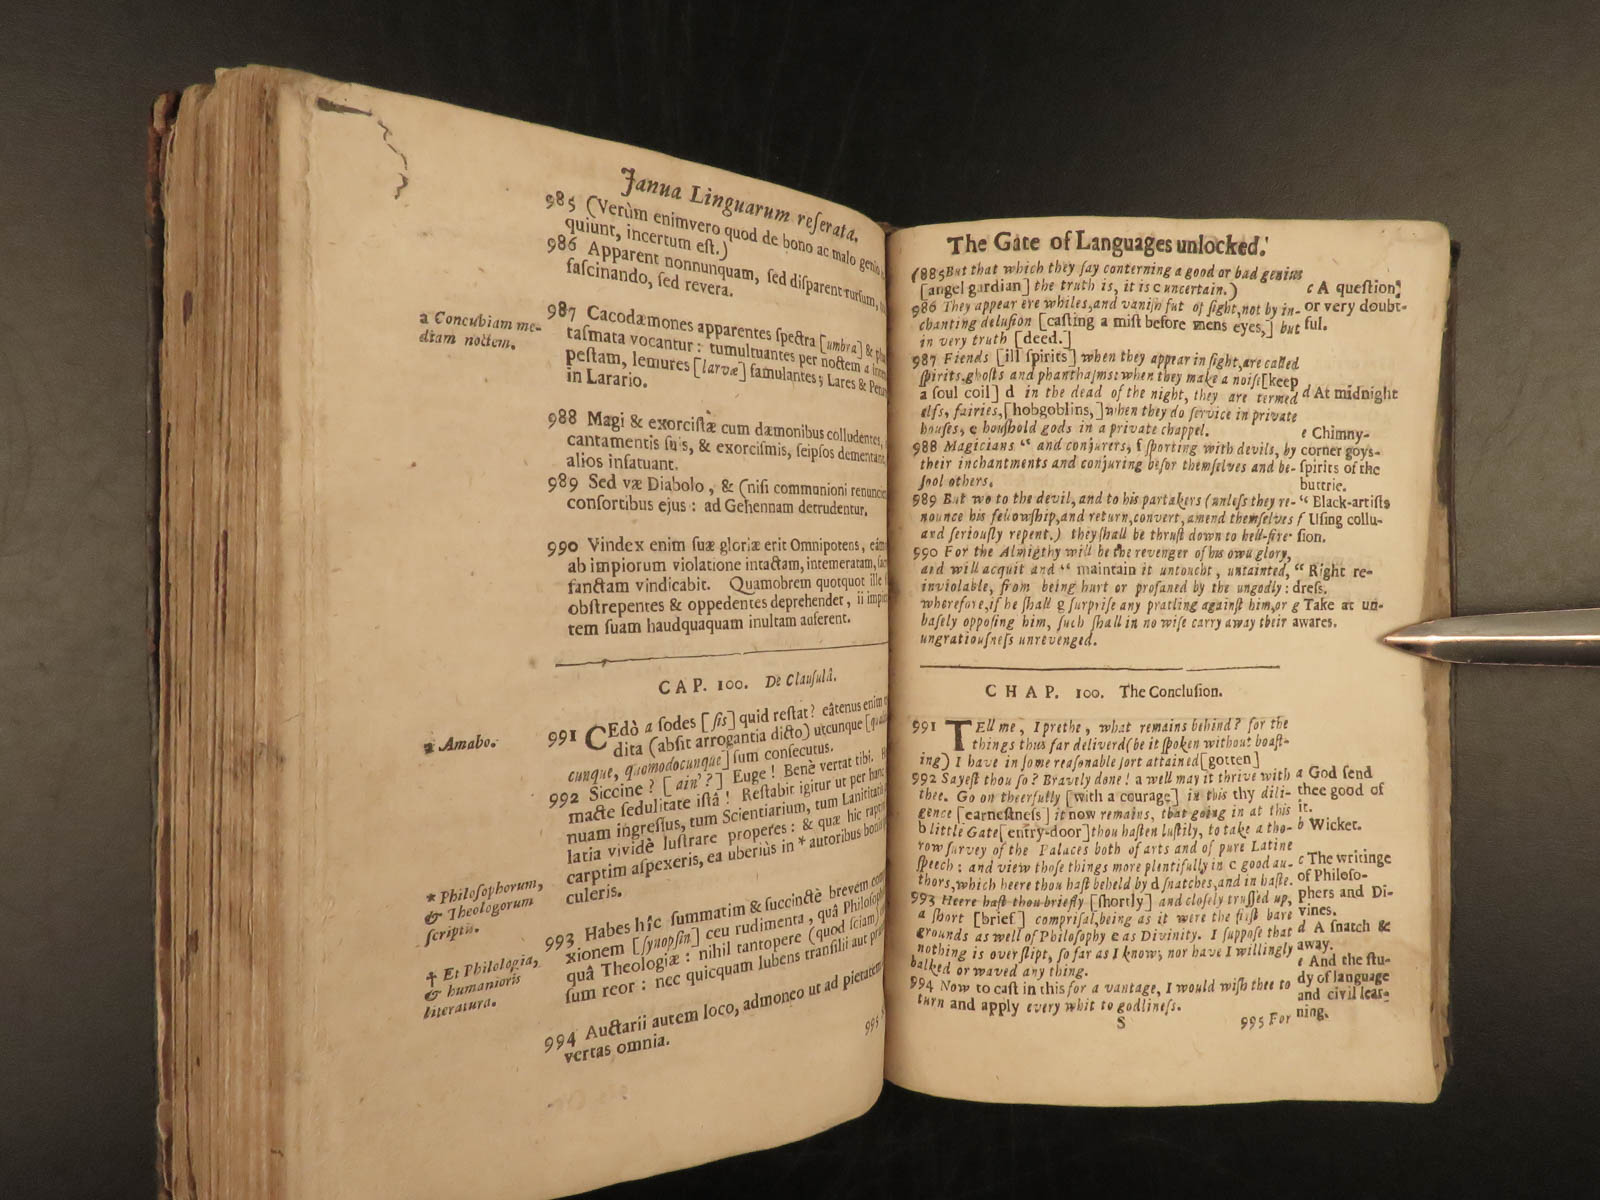 Janua Linguarum reſerata.
985 (Verùm enimvero quod de bono ac malo genio
quiunt, incertum eſt.)
986 Apparent nonnunquam, ſed diſparent rurſum,
faſcinando, ſed revera.
a Concubiam me-
diam noctem.
987 Cacodæmones apparentes ſpectra [umbra] &
taſmata vocantur: tumultuantes per noctem a
peſtam, lemures [larvæ] famulantes; Lares &
in Larario.
988 Magi & exorciſtæ cum dæmonibus colludentes,
cantamentis ſuis, & exorciſmis, ſeipſos
alios infatuant.
989 Sed væ Diabolo, & (niſi communioni
conſortibus ejus: ad Gehennam detrudentur.
990 Vindex enim ſuæ gloriæ erit Omnipotens,
ab impiorum violatione intactam, intemeratam,
ſanctam vindicabit. Quamobrem quotquot ille
obſtrepentes & oppedentes deprehendet, ii
tem ſuam haudquaquam inultam auferent.
CAP. 100. De Clauſulâ.
a Amabo.
991 CEdò a ſodes [ſis] quid reſtat? eâtenus enim
dita (abſit arrogantia dicto) utcunque
cunque, quomodocunque] ſum conſecutus.
992 Siccine? [ain'?] Euge! Benè vertat tibi.
macte ſedulitate iſtâ! Reſtabit igitur ut per hanc
nuam ingreſſus, tum Scientiarum, tum
latia vividè luſtrare properes: & quæ hîc
carptim aſpexeris, ea uberiùs in * autoribus
culeris.
* Philoſophorum,
& Theologorum
ſcriptis.
993 Habes hîc ſummatim & ſuccinctè brevem
xionem [ſynopſin] ceu rudimenta, quâ
quâ Theologiæ: nihil tantopere (quod ſciam)
ſum reor: nec quicquam lubens tranſilii aut
† Et Philologia,
& humanioris
literatura.
994 Auctarii autem loco, admoneo ut ad pietatem
vertas omnia.
995
The Gate of Languages unlocked.
(885 But that which they ſay conterning a good or bad genius
[angel gardian] the truth is, it is c uncertain.)
c A queſtion,
or very doubt-
ful.
986 They appear ere whiles, and vaniſh fut of ſight, not by in-
chanting deluſion [caſting a miſt before mens eyes,] but
in very truth [deed.]
987 Fiends [ill ſpirits] when they appear in ſight, are called
ſpirits, ghoſts and phanthaſms: when they make a noiſe [keep
a ſoul coil] d in the dead of the night, they are termed
elfs, fairies, [hobgoblins,] when they do ſervice in private
houſes, e houſhold gods in a private chappel.
d At midnight
e Chimny-
corner goys-
ſpirits of the
buttrie.
988 Magicians “ and conjurers, f ſporting with devils, by
their inchantments and conjuring beſor themſelves and be-
fool others.
“ Black-artiſts
f Uſing collu-
ſion.
989 But wo to the devil, and to his partakers (unleſs they re-
nounce his fellowſhip, and return, convert, amend themſelves
and ſeriouſly repent.) they ſhall be thruſt down to hell-fire
990 For the Almigthy will be the revenger of his own glory,
and will acquit and “ maintain it untoucht, untainted,
inviolable, from being hurt or profaned by the ungodly:
wherefore, if he ſhall g ſurpriſe any pratling againſt him, or
baſely oppoſing him, ſuch ſhall in no wiſe carry away their
ungratiouſneſs unrevenged.
“ Right re-
dreſs.
g Take at un-
awares.
CHAP. 100. The Concluſion.
991 TEll me, I prethe, what remains behind? for the
things thus far deliverd (be it ſpoken without boaſt-
ing) I have in ſome reaſonable ſort attained [gotten]
992 Sayeſt thou ſo? Bravely done! a well may it thrive with
thee. Go on cheerfully [with a courage] in this thy dili-
gence [earneſtneſs] it now remains, that going in at this
b little Gate [entry-door] thou haſten luſtily, to take a tho-
row ſurvey of the Palaces both of arts and of pure Latine
ſpeech: and view thoſe things more plentifully in c good au-
thors, which heere thou haſt beheld by d ſnatches, and in haſte.
a God ſend
thee good of
it.
b Wicket.
c The writinge
of Philoſo-
phers and Di-
vines.
d A ſnatch &
away.
993 Heere haſt thou briefly [ſhortly] and cloſely truſſed up,
a ſhort [brief] compriſal, being as it were the firſt bare
grounds as well of Philoſophy e as Divinity. I ſuppoſe that
nothing is overſlipt, ſo far as I know; nor have I willingly
balked or waved any thing.
e And the ſtu-
dy of language
and civil lear-
ning.
994 Now to caſt in this for a vantage, I would wiſh thee to
turn and apply every whit to godlineſs.
S
995 For